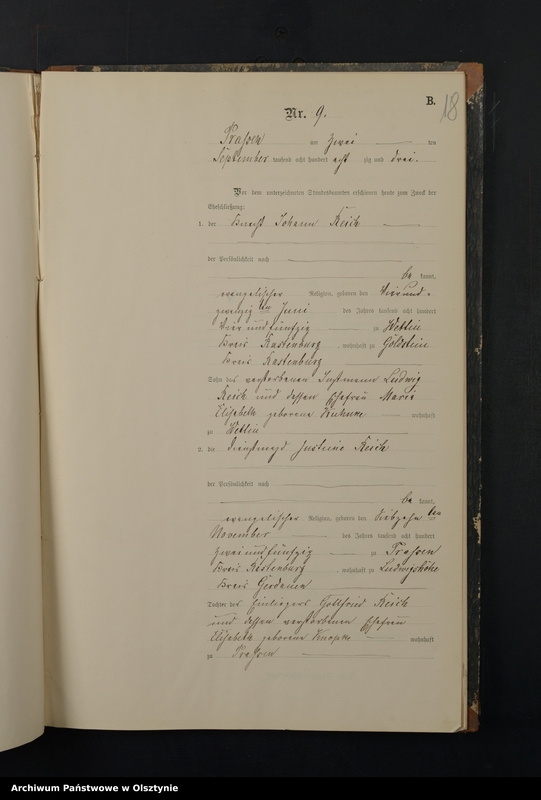 B.
18
Nr. 9.
Prassen am zwei ten
September tausend acht hundert acht zig und drei.
Vor dem unterzeichneten Standesbeamten erschienen heute zum Zweck der
Eheschließung:
1. der Knecht Johann Reich
der Persönlichkeit nach
be kannt,
evangelischer Religion, geboren den vierund-
zwanzigten Juni des Jahres tausend acht hundert
vier und fünfzig zu
Kreis Rastenburg, wohnhaft zu
Kreis Rastenburg
Sohn des verstorbenen Instmann Ludwig
Reich und dessen Ehefrau Marie
Elisabeth geborene wohnhaft
zu
2. die Dienstmagd Justine Reich
der Persönlichkeit nach
be kannt,
evangelischer Religion, geboren den siebzehnten
November des Jahres tausend acht hundert
zwei und fünfzig zu Prassen
Kreis Rastenburg, wohnhaft zu Ludwigshöhe
Kreis Gerdauen
Tochter des Einliegers Gottfried Reich
und dessen verstorbenen Ehefrau
Elisabeth geborene wohnhaft
zu Prassen
Archiwum Państwowe w Olsztynie